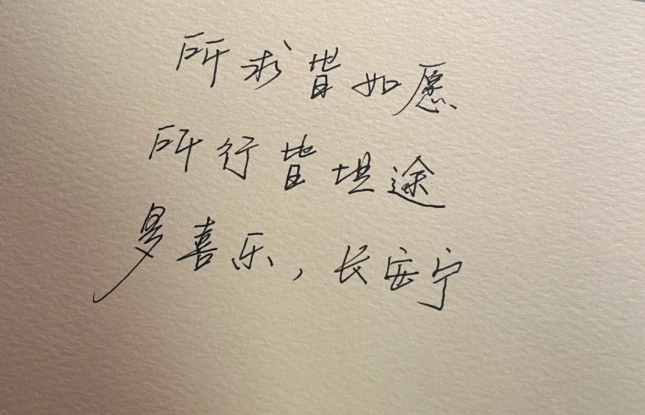 所求皆如愿
所行皆坦途
多喜乐，长安宁